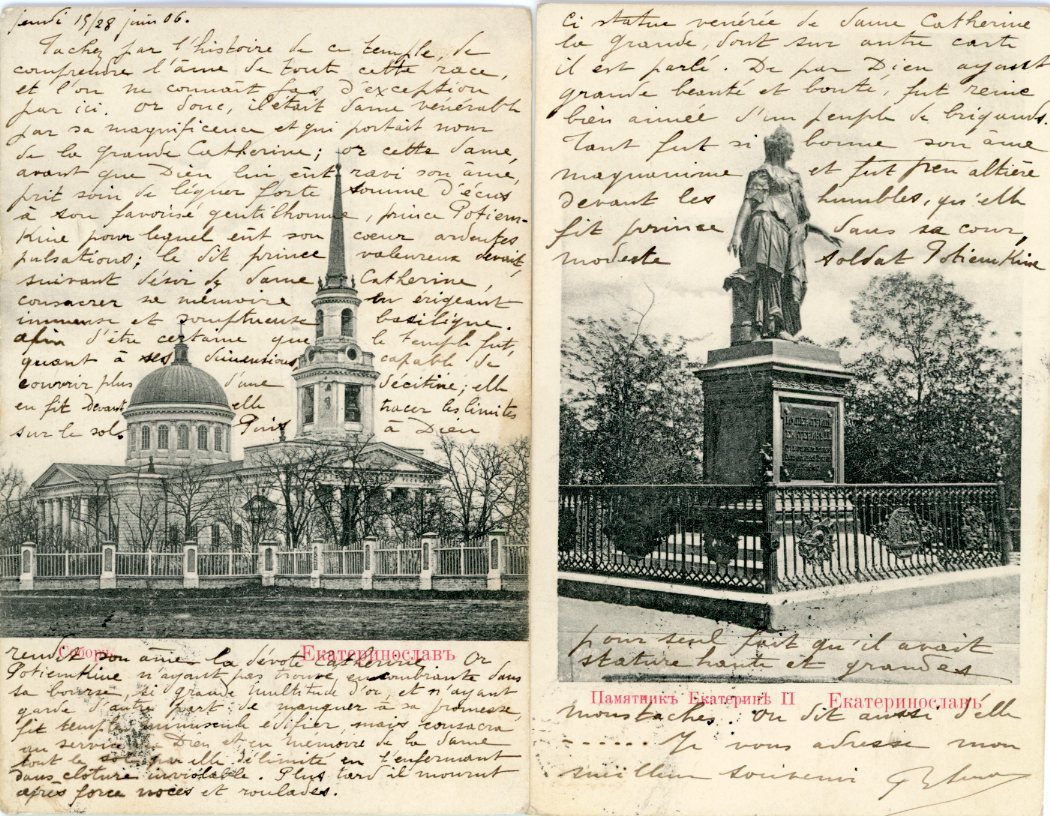 Jeudi 15/28 juin 06.
Tachez par l'histoire de ce temple, de
comprendre l'âme de toute cette race,
et l'on ne connait pas d'exception
par ici. Or donc, il était dame vénérable
par sa magnificence et qui portait nom
de la grande Catherine; or cette dame,
avant que Dieu lui eût ravi son âme,
prit soin de léguer forte somme d'écus
à son favorisé gentilhomme, prince Potiem-
Kine pour lequel eût son coeur ardentes
pulsations; le dit prince valeureux devait,
suivant désir de dame Catherine,
consacrer sa mémoire en érigeant
immense et somptueuse basilique.
afin d'être certaine que le temple fut,
quant à ses dimensions capable de
couvrir plus d'une décitine; elle
en fit devant elle tracer les limites
sur le sol. Puis à Dieu
Соборъ. Екатеринославъ
rendit son âme la dévote Catherine. Or
Potiemkine n'ayant pas trouvé, encombrante dans
sa bourse, si grande multitude d'or, et n'ayant
garde d'autre part de manquer à sa promesse,
fit temple minuscule édifier, mais consacra
au service à Dieu et en mémoire de la dame
tout le sol qu'elle délimite en l'enfermant
dans clôture inviolable. Plus tard il mourut
après force noces et roulades.
Ci statue vénérée de dame Catherine
la grande, dont sur autre carte
il est parlé. De par Dieu ayant
grande beauté et bonté, fut reine
bien aimée d'un peuple de brigands.
Tant fut si bonne son âme
magnanime et fut peu altière
devant les humbles, qu'elle
fit prince dans sa cour,
modeste soldat Potiemkine
pour seul fait qu'il avait
stature haute et grandes
Памятникъ Екатеринѣ II Екатеринославъ
moustaches. On dit aussi d'elle
...... Je vous adresse mon
meilleur souvenir